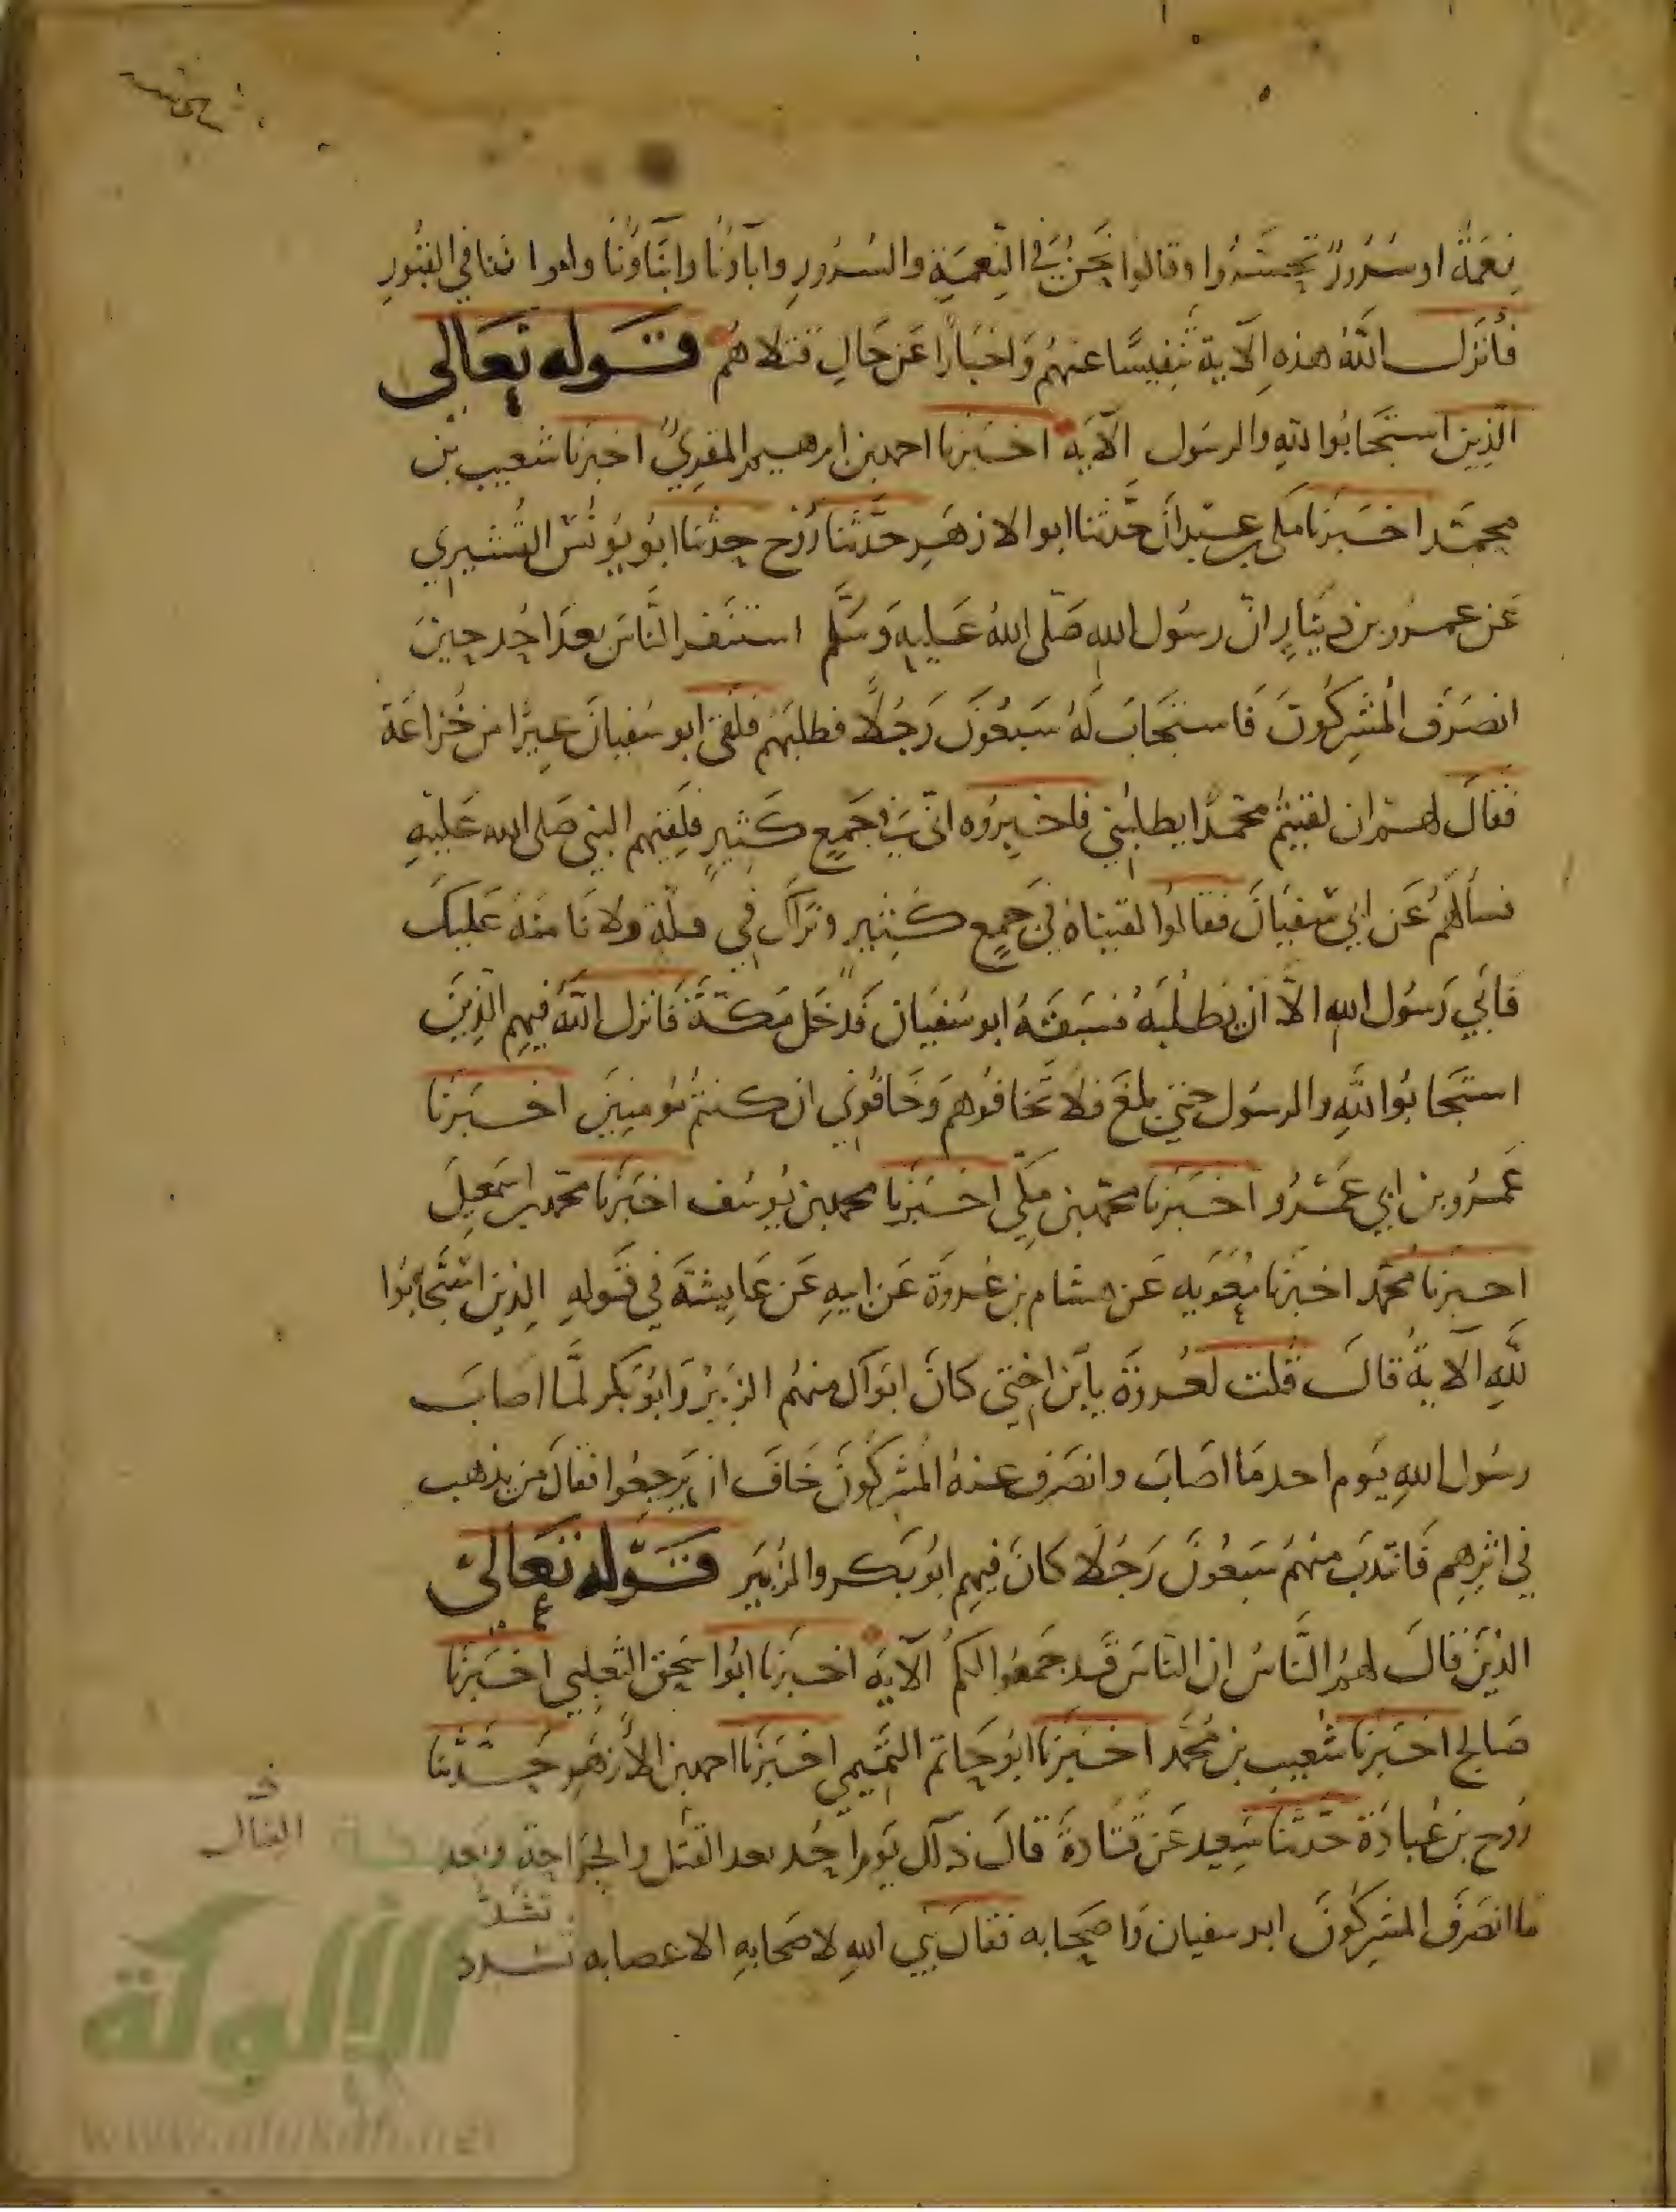 نعمة او سرور تحسّروا وقالوا نحن في النِّعمَةِ والسُرُورِ واباؤنا وابناؤنا واخواننا في القبُورِ
فأنزل اللّهُ هذهِ الآية تنفيسًا عنهُم وَاخبارًا عَن حَالِ قتلاهم قوله تعالى
الّذِين استجَابُوا للهِ والرسُول الآيَة اخبَرنا احمد بن ابرهيم المقرِيُ اخبَرنا شعيب بن
محمّد اخبَرَنا مكى بن عبدان حَدّثنا ابو الازهَرِ حدّثنا رَوْح حدثنا ابُو يُونُس القُشَيرِي
عَن عمرو بن دينارٍ انّ رسُول اللهِ صَلّى اللهُ عَليهِ وَسَلَّم استنفر النَّاسَ بعدَ احُد حِينَ
انصَرَف المُشرِكُونَ فَاستجَابَ لَهُ سَبعُونَ رَجُلًا فطلبَهُم فلقى ابو سُفيانَ عِيرًا من خُزاعَة
فقالَ لهم ان لقيتُم محَمّدًا يطلبُني فاخبِرُوه انّي في جَمعٍ كَثيرٍ فلقِيَهم النبي صَلى الله عَليهِ
فسألهُم عَن ابي سُفيَانَ فقالوُا لقيناهُ في جَمعٍ كثِيرٍ ونَراكَ في قلّة ولا نَامَنُهُ عَليكَ
فأبَي رَسُول اللهِ الّا ان يَطلُبَهُ فسَبَقَهُ ابو سُفيَان فَدخَل مَكّةَ فَانزل اللّهُ فيهِم الّذِينَ
استجَابُوا للّهِ والرسُول حتى بلَغَ فلا تخَافُوهم وَخَافُونِ ان كنتُم مُومنِينَ اخبَرنَا
عَمرُو بن ابي عَمرُو اخبَرنا محمّد بن مكّي اخبَرنَا محمد بن يُوسُف اخبَرنا محمّد بن اسمَعِيلَ
اخبرنا محمّد اخبرَنا معويه عَن هشام بن عُروَة عَن ابيهِ عَن عَايِشَةَ في قَولهِ الذِين استجَابُوا
للّهِ الآيةُ قالَت قُلت لعُروَة يا بن اختي كانَ ابوَاك منهُم الزبَيرُ وَابُو بَكر لمَّا اصابَ
رسُول اللهِ يَوم احد مَا اصَابَ وانصَرف عنهُ المُشركُونَ خَافَ ان يَرجعُوا فقالَ مَن يذهب
في اثرِهِم فَانتدَبَ منهُم سَبعُونَ رَجُلًا كانَ فيهِم ابُو بَكر والزُبَير قوله تعالى
الذينَ قالَ لهمُ النَّاسُ ان الناسَ قد جمَعُوا لكمُ الآيَة اخبَرنا ابُوا سحَق الثعلبي اخبَرنَا
صَالح اخبَرَنا شُعيب بن مُحَمّد اخبَرنا ابُو حَاتم التميمي اخبَرنا احمد بن الأزهَر حَدّثنا
رَوح بن عُبادَة حَدّثنا سَعِيد عَن قتَادة قالَ ذاك يَومَ احُد بعد القتل والجرَاحة وبَعد
القتال
ما انصَرفَ المشرِكُونَ ابو سفيان وَاصحَابه فقالَ نبي اللهِ لاصحَابهِ الا عصابه تشدد
الألوكة
www.alukah.net